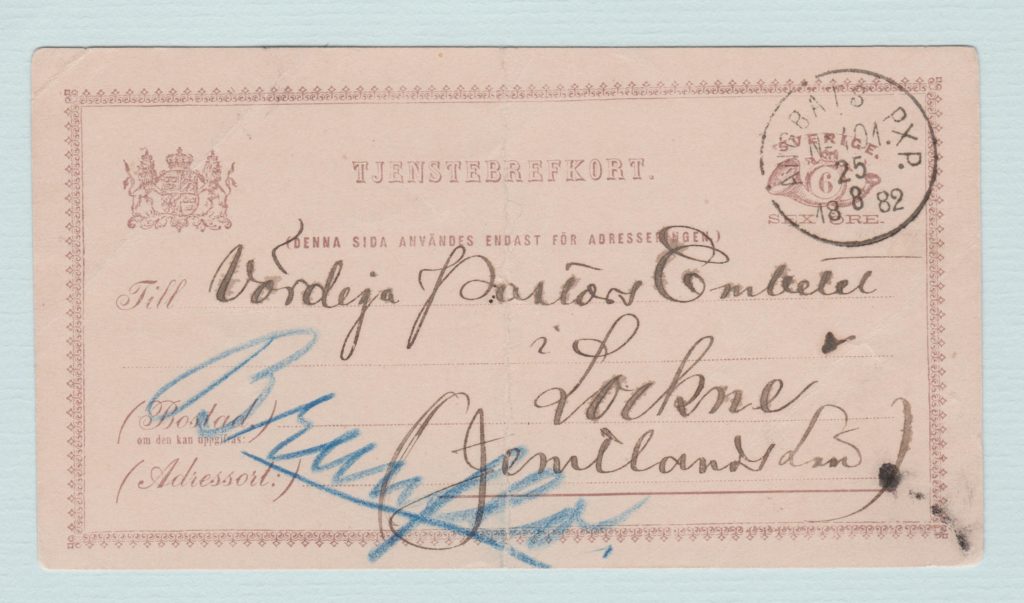 ÅNGBÅTS PXP.
No 101.
25
18 8 82
SVERIGE.
6
SEX ÖRE.
TJENSTEBREFKORT.
(DENNA SIDA ANVÄNDES ENDAST FÖR ADRESSERINGEN.)
Till Vördiga Pastors Embetet
i
Lockne
(Bostad)
om den kan uppgifvas:
(Jemtlands Län)
(Adressort:)
Brunflo.